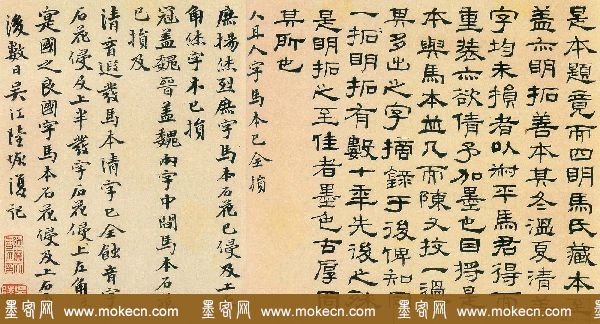 是本題竟而四明馬氏藏本至
盖亦明拓善本其冬溫夏清
字均未損者以平馬君得而
重裝亦欲倩予加墨也因将是
本與馬本並几而陳又挍一過
異多出之字摘錄于後俾知同
一拓明拓有數十年先後之殊
是明拓之至佳者墨色古厚固
其所也
人耳人字馬本已全損
廉揚絲烈廉字馬本石花已侵及上
角絲字亦已損
冠盖魏晉盖魏兩字中間馬本石
已損及
清音遐發馬本清字已全蝕音字
石花侵及上半發字石花侵上左角
寔國之良國字馬本石花侵及上右
後數日吳江陸恢復記
墨客网 www.mokecn.com 墨客网 www.mokecn.com 墨客网 www.mokecn.com